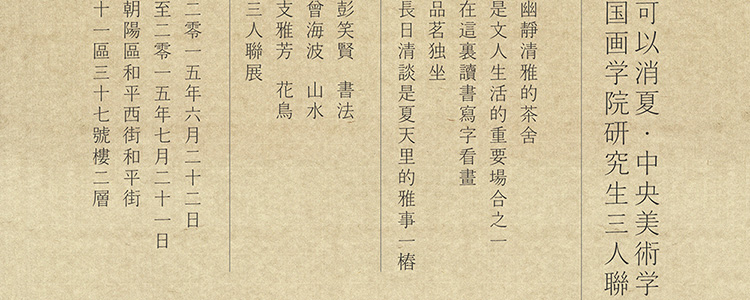 可以消夏·中央美術学
国画学院研究生三人聯
幽靜清雅的茶舍
是文人生活的重要場合之一
在這裏讀書寫字看畫
品茗独坐
長日清談是夏天里的雅事一樁
彭笑賢 書法
曾海波 山水
支雅芳 花鳥
三人聯展
二零一五年六月二十二日
至二零一五年七月二十一日
朝陽區和平西街和平街
十一區三十七號樓二層